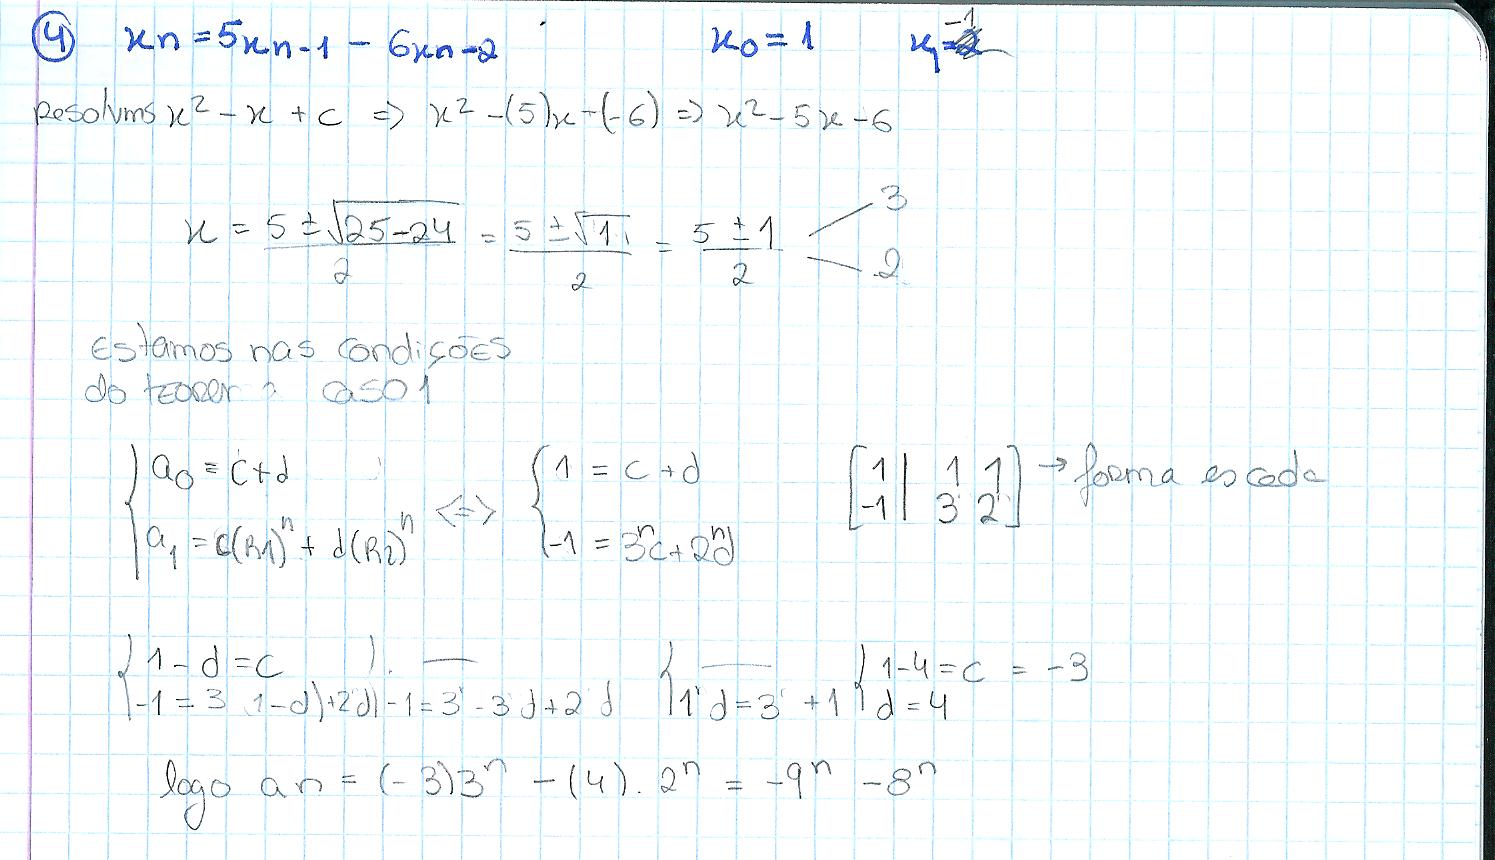 ④ xn = 5xn-1 - 6xn-2 x0 = 1 x1 = -1
Resolvms x² - x + c => x² - (5)x - (-6) => x² - 5x - 6
x = 5 ± √25-24 / 2 = 5 ± √1 / 2 = 5 ± 1 / 2 3 2
Estamos nas condições
do caso 1
{ a0 = c + d a1 = c(R1)ⁿ + d(R2)ⁿ <=> { 1 = c + d -1 = 3ⁿc + 2ⁿd [ 1 | 1 1 -1 | 3 2 ] → forma escada
{ 1 - d = c -1 = 3(1-d)+2d | — -1 = 3 - 3d + 2d { — 1 d = 3 + 1 { 1-4 = c = -3 d = 4
logo an = (-3)3ⁿ - (4). 2ⁿ = -9ⁿ - 8ⁿ